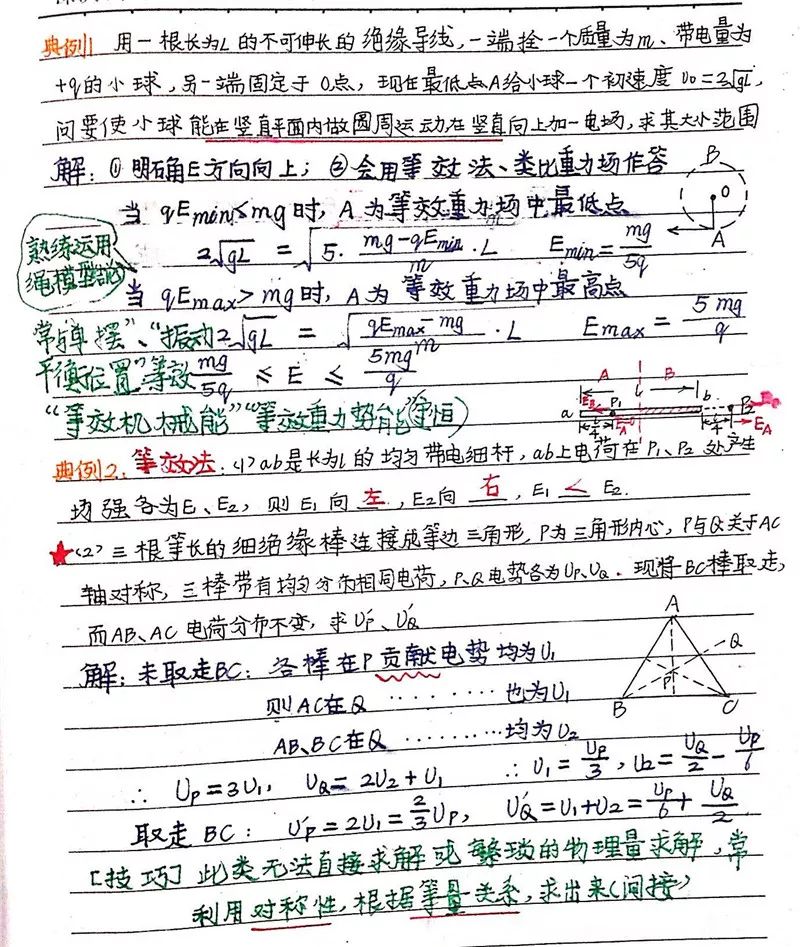 典例1 用一根长为L的不可伸长的绝缘导线,一端拴一个质量为m、带电量为
+q的小球,另一端固定于O点,现在最低点A给小球一个初速度υ₀=2√gL,
问要使小球能在竖直平面内做圆周运动,在竖直向上加一电场,求其大小范围
解:①明确E方向向上;②会用等效法、类比重力场作答
B
O
A
当qEmin≤mg时,A为等效重力场中最低点
熟练运用
绳模型
2√gL = √(5·(mg-qEmin)/m·L) Emin=mg/5q
当qEmax>mg时,A为等效重力场中最高点
常与“单摆”、“振动
2√gL = √((qEmax-mg)/m·L) Emax=5mg/q
平衡位置”等效
mg/5q ≤ E ≤ 5mg/q
“等效机械能”“等效重力势能”(守恒)
A B
a P₁ b P₂
EA
典例2:等效法.(1)ab是长为l的均匀带电细杆,ab上电荷在P₁、P₂处产生
场强各为E₁、E₂,则E₁向左,E₂向右,E₁<E₂.
★(2)三根等长的细绝缘棒连接成等边三角形,P为三角形内心,P与Q关于AC
轴对称,三棒带有均匀分布相同电荷,P、Q电势各为UP、UQ.现将BC棒取走,
而AB、AC电荷分布不变,求U'P、U'Q
A
Q
P
B C
解:未取走BC:各棒在P贡献电势均为U₁
则AC在Q·········也为U₁
AB、BC在Q·········均为U₂
∴ UP=3U₁, UQ=2U₂+U₁ ∴U₁=UP/3,U₂=UQ/2-UP/6
取走BC: U'P=2U₁=2/3UP, U'Q=U₁+U₂=UP/6+UQ/2
[技巧]此类无法直接求解或繁琐的物理量求解,常
利用对称性,根据等量关系,求出来(间接)